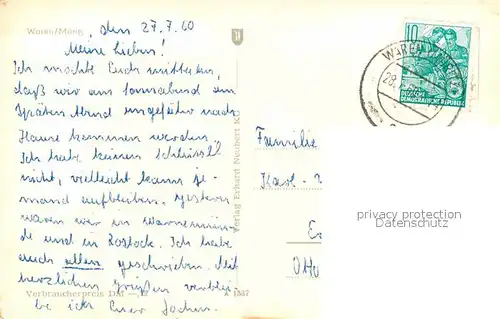 Waren/Müritz, den 27.7.60
Meine Lieben!
Ich möchte Euch mitteilen,
daß wir am Sonnabend am
späten Abend ungefähr nach
Hause kommen werden.
Ich habe keinen Schlüssel
nicht, vielleicht kann je-
mand aufbleiben. Gestern
waren wir in Warnemün-
de und in Rostock. Ich habe
auch allen geschrieben. Mit
herzlichen Grüßen verblei-
be ich Euer Jochen.
Verbraucherpreis DM
Verlag Erhard Neubert K
10
DEUTSCHE
DEMOKRATISCHE REPUBLIK
WAREN
28.
Familie
Karl-
Otto
privacy protection
Datenschutz